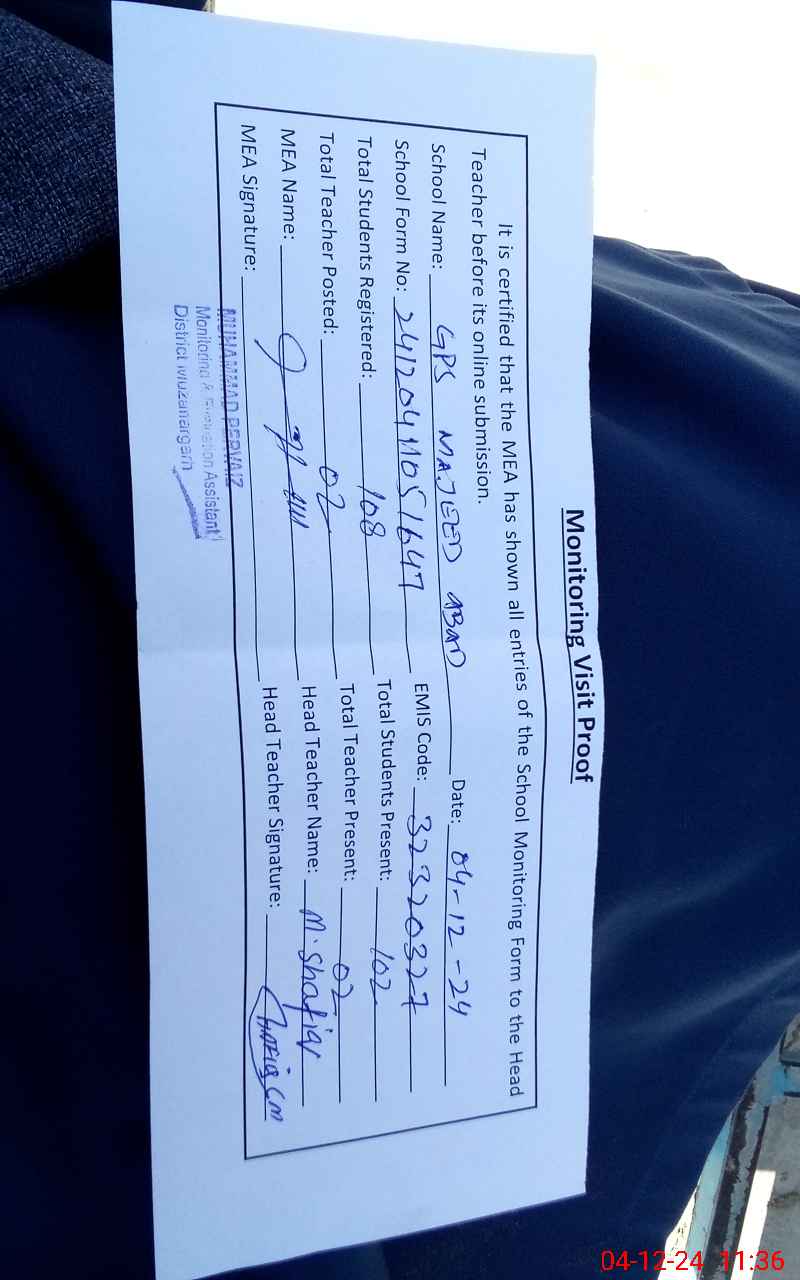 Monitoring Visit Proof
It is certified that the MEA has shown all entries of the School Monitoring Form to the Head
Teacher before its online submission.
School Name: GPS MAJEED ABAD Date: 04-12-24
School Form No: 24120411051647 EMIS Code: 32320327
Total Students Registered: 108 Total Students Present: 102
Total Teacher Posted: 02 Total Teacher Present: 02
MEA Name: Head Teacher Name: M. Shafiq
MEA Signature: Head Teacher Signature:
MUHAMMAD PERVAIZ
Monitoring & Evaluation Assistant
District Muzaffargarh
04-12-24 11:36